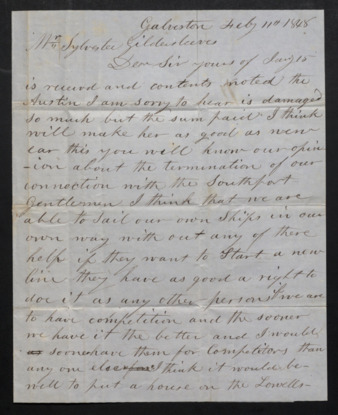 Galveston Feby 11th 1848
Mr Sylvester Gildersleeves
Dear Sir yours of Jany 15
is recved and contents noted the
Austin I am sorry to hear is damaged
so much but the sum paid I think
will make her as good as new
ear this you will know our opin
-ion about the termination of our
connection with the Southport
Gentlemen I think that we are
able to Sail our own Ships in our
own way with out any of there
help if they want to Start a new
line they have as good a right to
doe it as any other persons if we are
to have competition and the sooner
we have it the better and I would
as some have them for Competitors than
any one else I think it would be
well to put a house on the Lowells